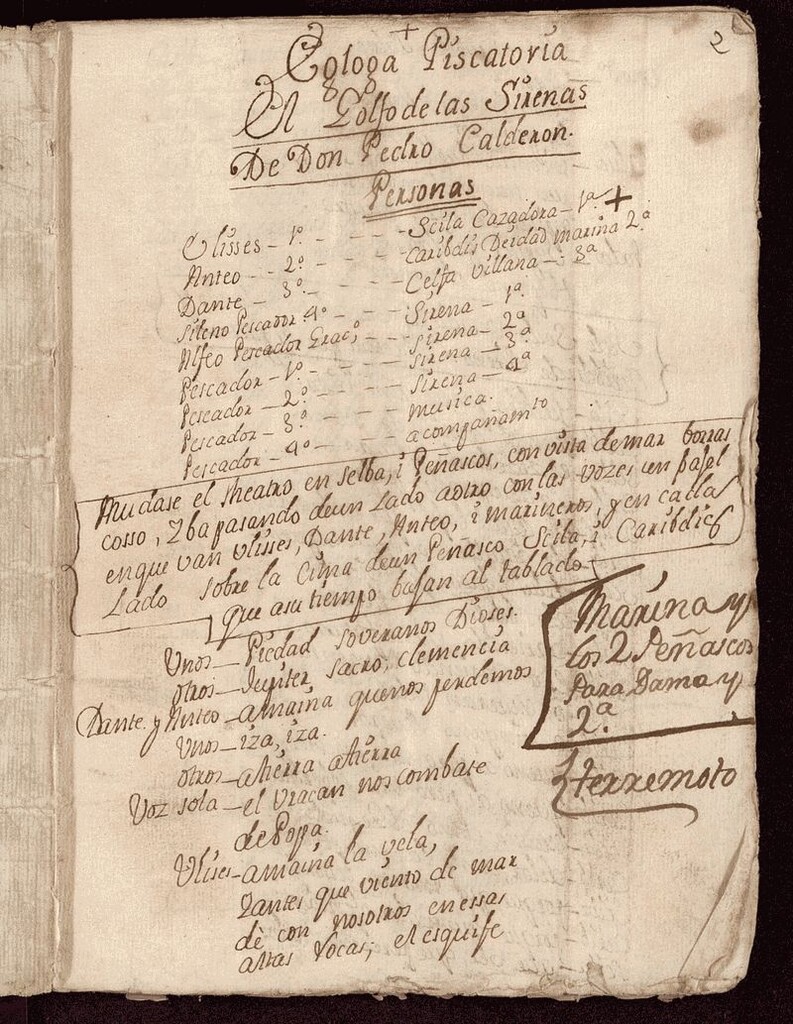 +
2
Egloga Piscatoria
El Golfo de las Sirenas
De Don Pedro Calderon.
Personas
Ulisses - 1º. - - - - Scila Cazadora - 1ª. +
Anteo - - 2º. - - - - Caribdis Deidad Marina 2ª.
Dante - 3º. - - - - Celfa Villana - 3ª
Sileno Pescador 4º - - - Sirena - 1ª.
Alfeo Pescador Gracº; - - sirena - 2ª
Pescador - 1º. - - - - sirena - 3ª
Pescador - 2º. - - - - sirena - 4ª
Pescador - 3º - - - - musica.
Pescador - 4º - - - - acompañamto
Mudase el theatro en selba, i Peñascos, con vista de mar borras
cosso, I ba pasando de un lado aotro con las vozes un bajel
enque van Ulisses, Dante, Anteo, i marineros, y en cada
Lado sobre la Cima deun Peñasco Scila, i Caribdis
que asu tiempo bajan al tablado
Marina y
los 2 Peñascos
Para Dama y
2ª.
Unos - Piedad soveranos Dioses.
otros - Jupiter sacro, clemencia
Dante y Anteo - amaina quenos perdemos
Unos - iza, iza.
otros - atierra atierra
terremoto
Voz sola - el Uracan nos combate
de Popa.
Ulises - amaina la vela,
I antes que viento de mar
dè con nosotros en essas
altas rocas; el esquife